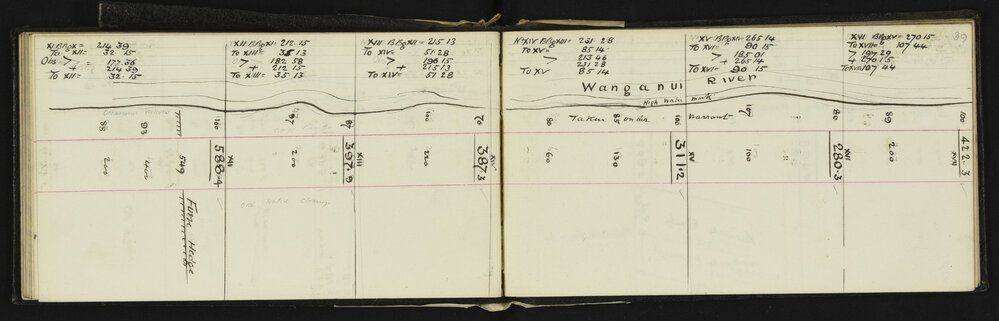 XI B.Bg X = 214 39
To XII = 32 15
Obs > = 177.36
+ 214 39
To XII = 32. 15
XII B.Bg XI = 212. 15
To XIII = 35 13
> 182 58
+ 212 15
To XIII = 35 13
XIII B.Bg XII = 215 13
To XIV = 51.28
> 196 15
+ 215 13
To XIV = 51 28
No XIV B.Bg XIII = 231 28
To XV 85 14
> 213 46
231 28
To XV 85 14
XV B.Bg XIV = 265 14
To XVI = 90 15
> 185 01
+ 265 14
To XVI = 90 15
XVI B.Bg XV = 270 15
To XVII = 107 44
> 197 29
+ 270 15
To XVII 107 44
39
Wanganui River
High Water mark
Taken under Warrant
88
93
100
97
97
100
70
80
85
100
107
80
89
100
200
400
549
588.4
XII
200
397.9
XIII
220
387.3
XIV
60
130
311.2
XV
100
280.3
XVI
200
422.3
XVII
Furze Hedge
Old Native Clearing